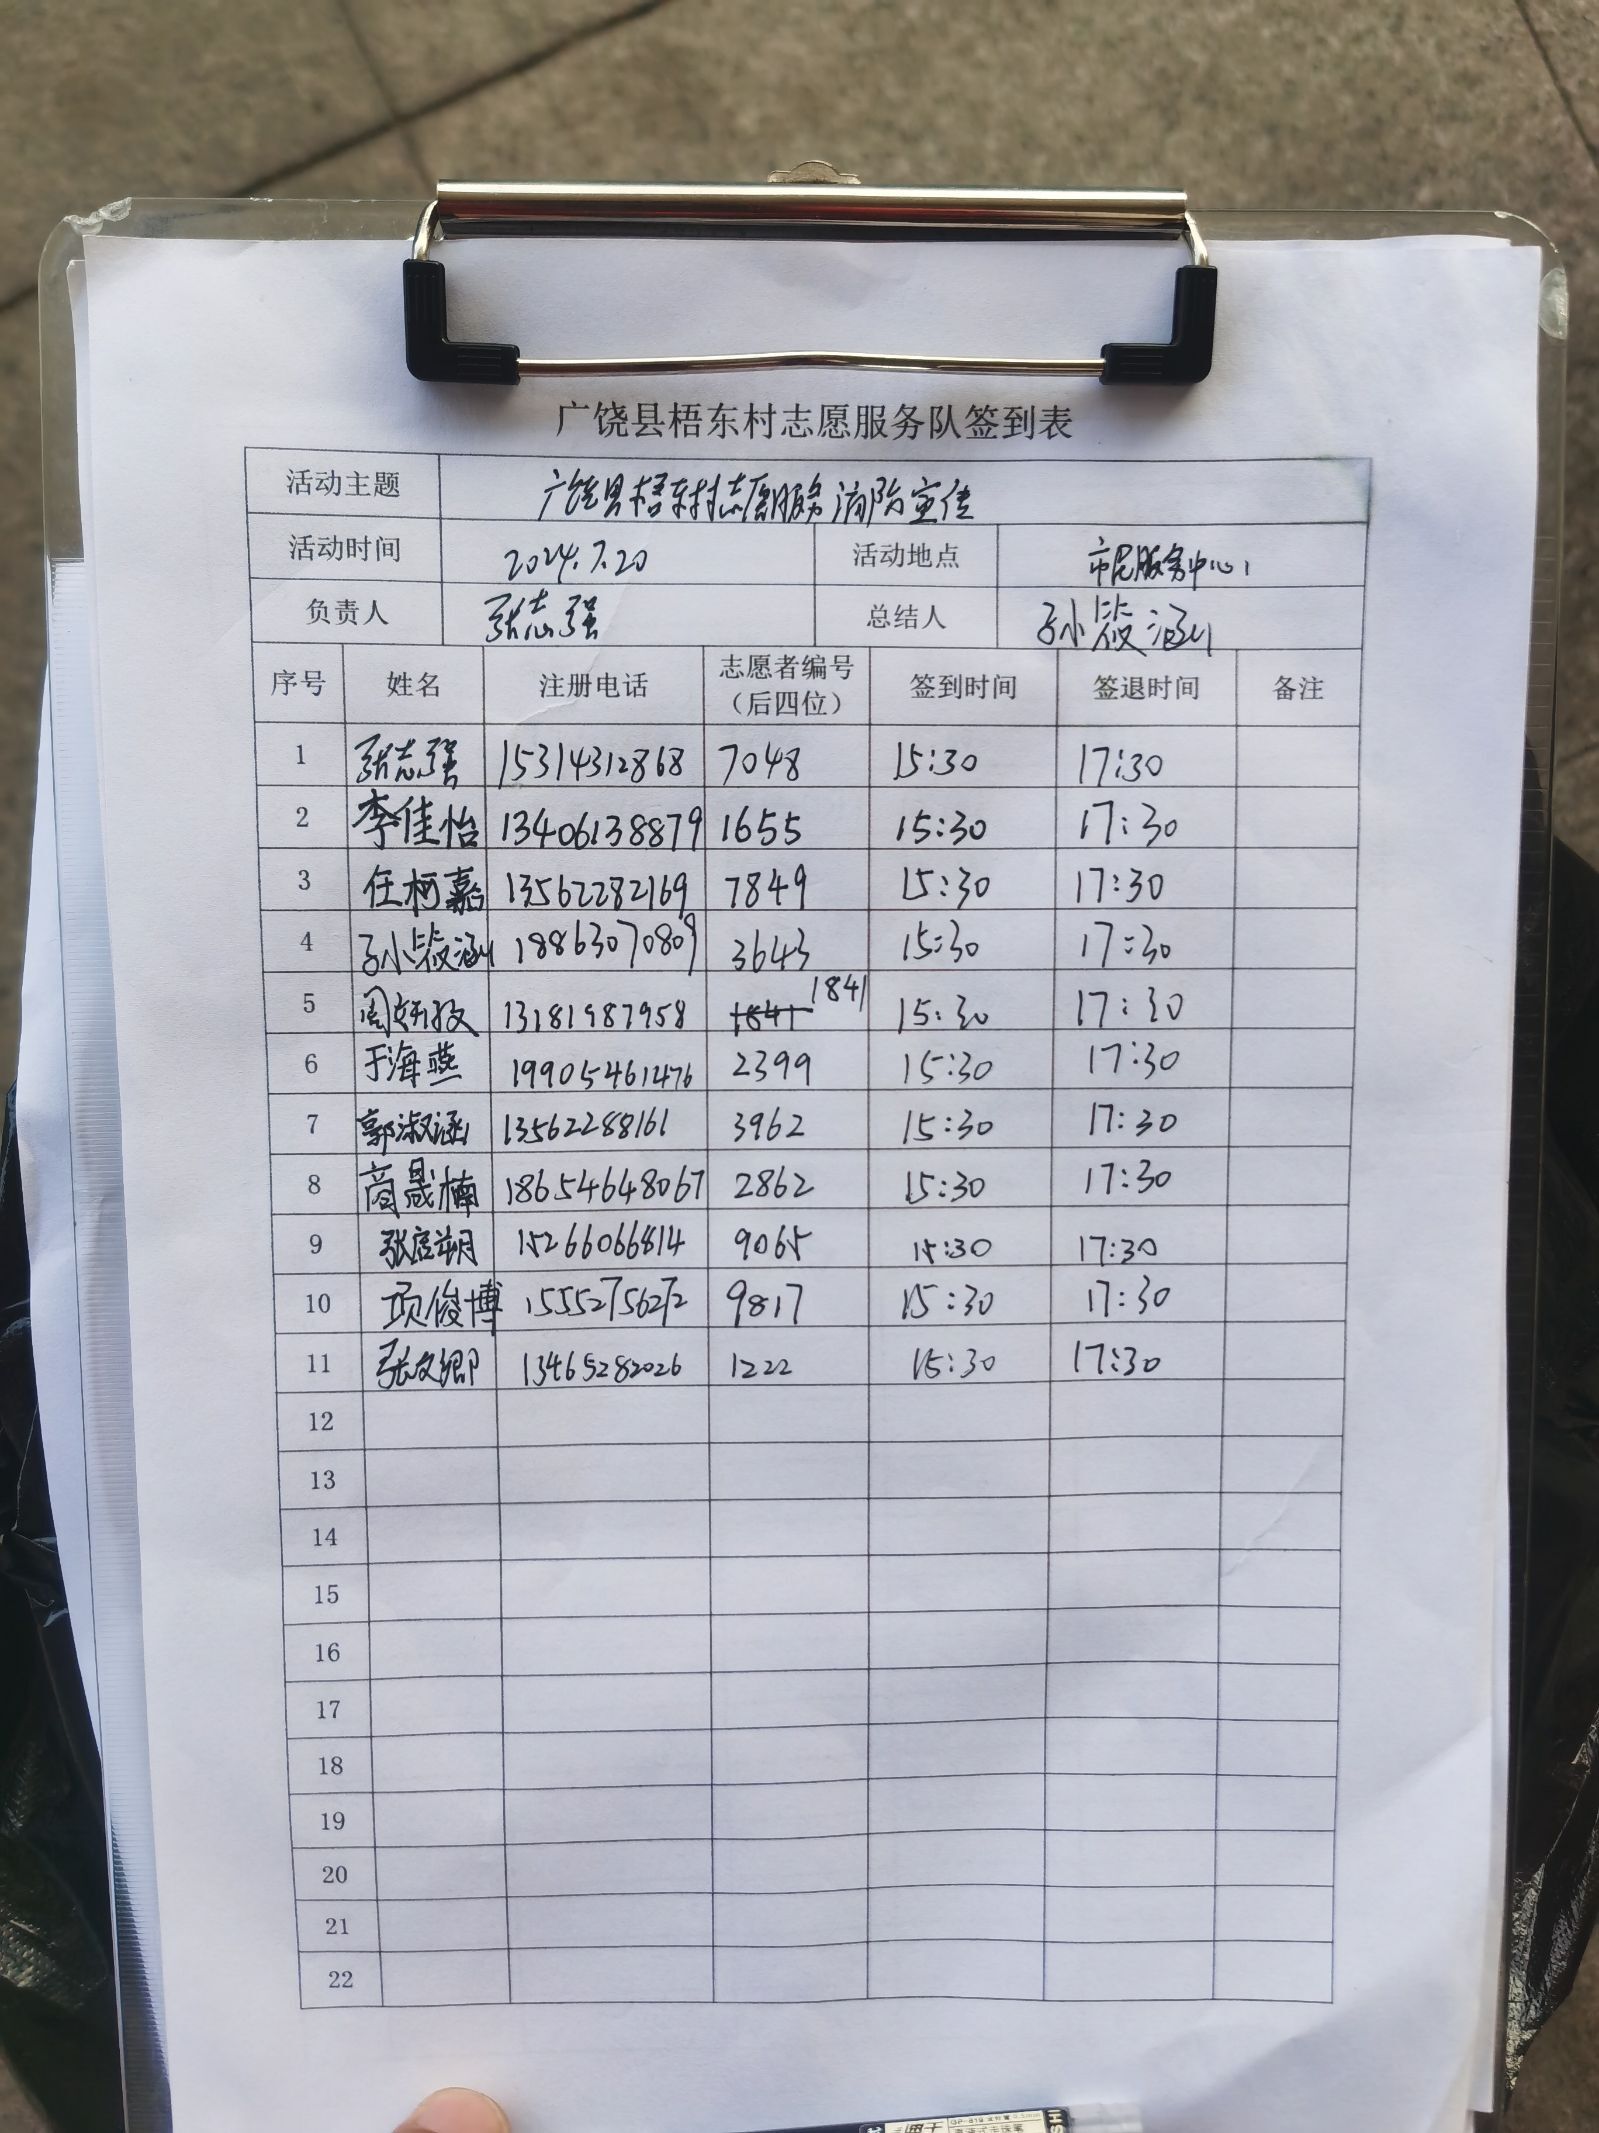 广饶县梧东村志愿服务队签到表
活动主题 广饶县梧东村志愿服务消防宣传
活动时间 2024.7.20 活动地点 市民服务中心
负责人 张志强 总结人 孙筱涵
序号 姓名 注册电话 志愿者编号（后四位） 签到时间 签退时间 备注
1 张志强 15314312868 7048 15:30 17:30
2 李佳怡 13406138879 1655 15:30 17:30
3 任柯嘉 13562282169 7849 15:30 17:30
4 孙筱涵 18863070809 3643 15:30 17:30
5 周妍孜 13181987958 1841 1841 15:30 17:30
6 于海燕 19905461476 2399 15:30 17:30
7 郭淑涵 13562288161 3962 15:30 17:30
8 商晟楠 18654648067 2862 15:30 17:30
9 15266066814 9065 15:30 17:30
10 项俊博 15552756272 9817 15:30 17:30
11 张文卿 13465282026 1222 15:30 17:30
12
13
14
15
16
17
18
19
20
21
22